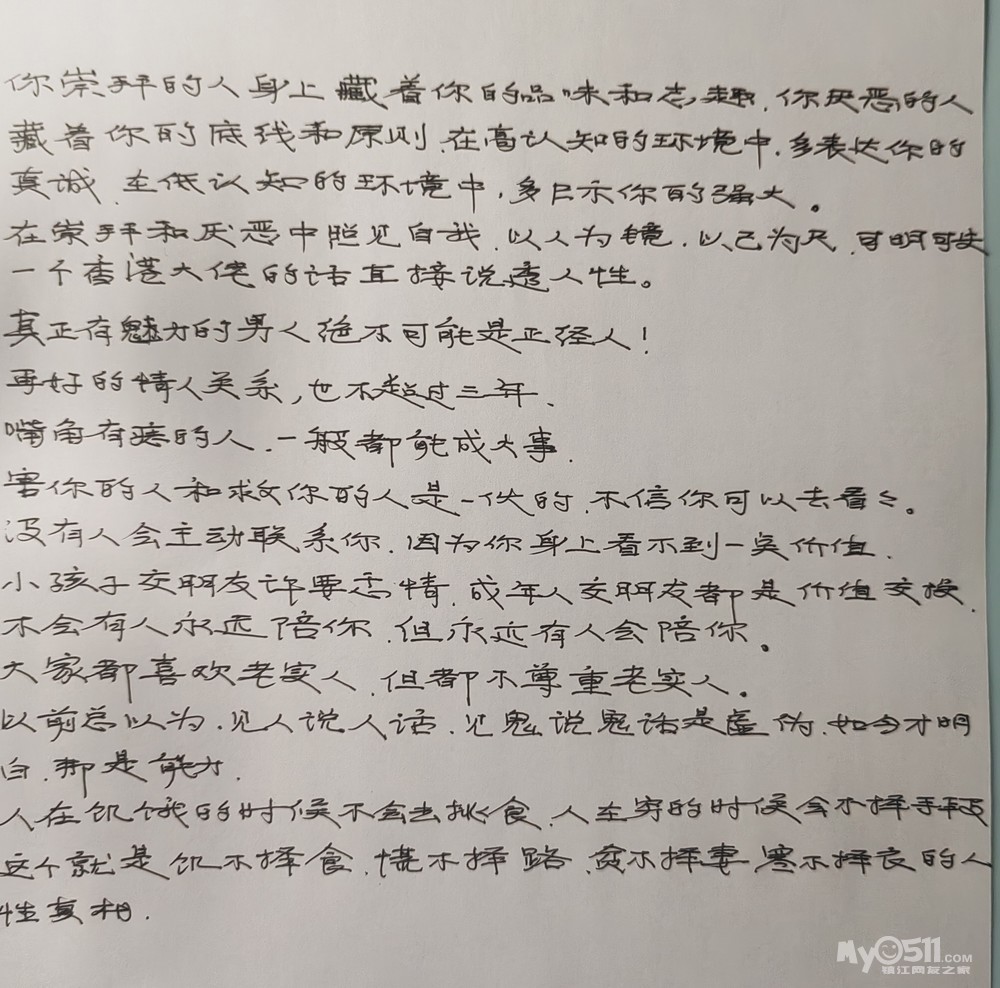 你崇拜的人身上藏着你的品味和志趣，你厌恶的人
藏着你的底线和原则，在高认知的环境中，多表达你的
真诚，在低认知的环境中，多展示你的强大。
在崇拜和厌恶中照见自我，以人为镜，以己为尺，可明可失
一个香港大佬的话直接说透人性。
真正有魅力的男人绝不可能是正经人！
再好的情人关系，也不超过三年、
嘴角有痣的人、一般都能成大事、
害你的人和救你的人是一伙的，不信你可以去看看。
没有人会主动联系你，因为你身上看不到一点价值、
小孩子交朋友许要感情，成年人交朋友都是价值交换、
不会有人永远陪你，但永远有人会陪你。
大家都喜欢老实人，但都不尊重老实人。
以前总以为，见人说人话，见鬼说鬼话是虚伪，如今才明
白，那是能力、
人在饥饿的时候不会去挑食，人在穷的时候会不择手段
这个就是饥不择食，慌不择路，贫不择妻，寒不择衣的人
性真相.
My0511.COM
镇江网友之家